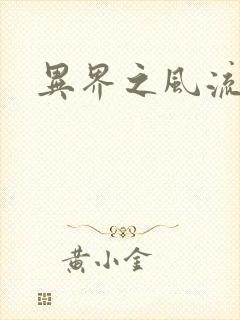 異界之風流
黃小金